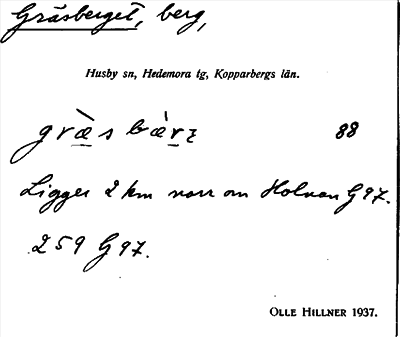 Gräsberget, berg,
Husby sn, Hedemora tg, Kopparbergs län.
græ̀s bærɩ 88
Ligger 2 km norr om Holvan G 97.
259 G 97.
OLLE HILLNER 1937.